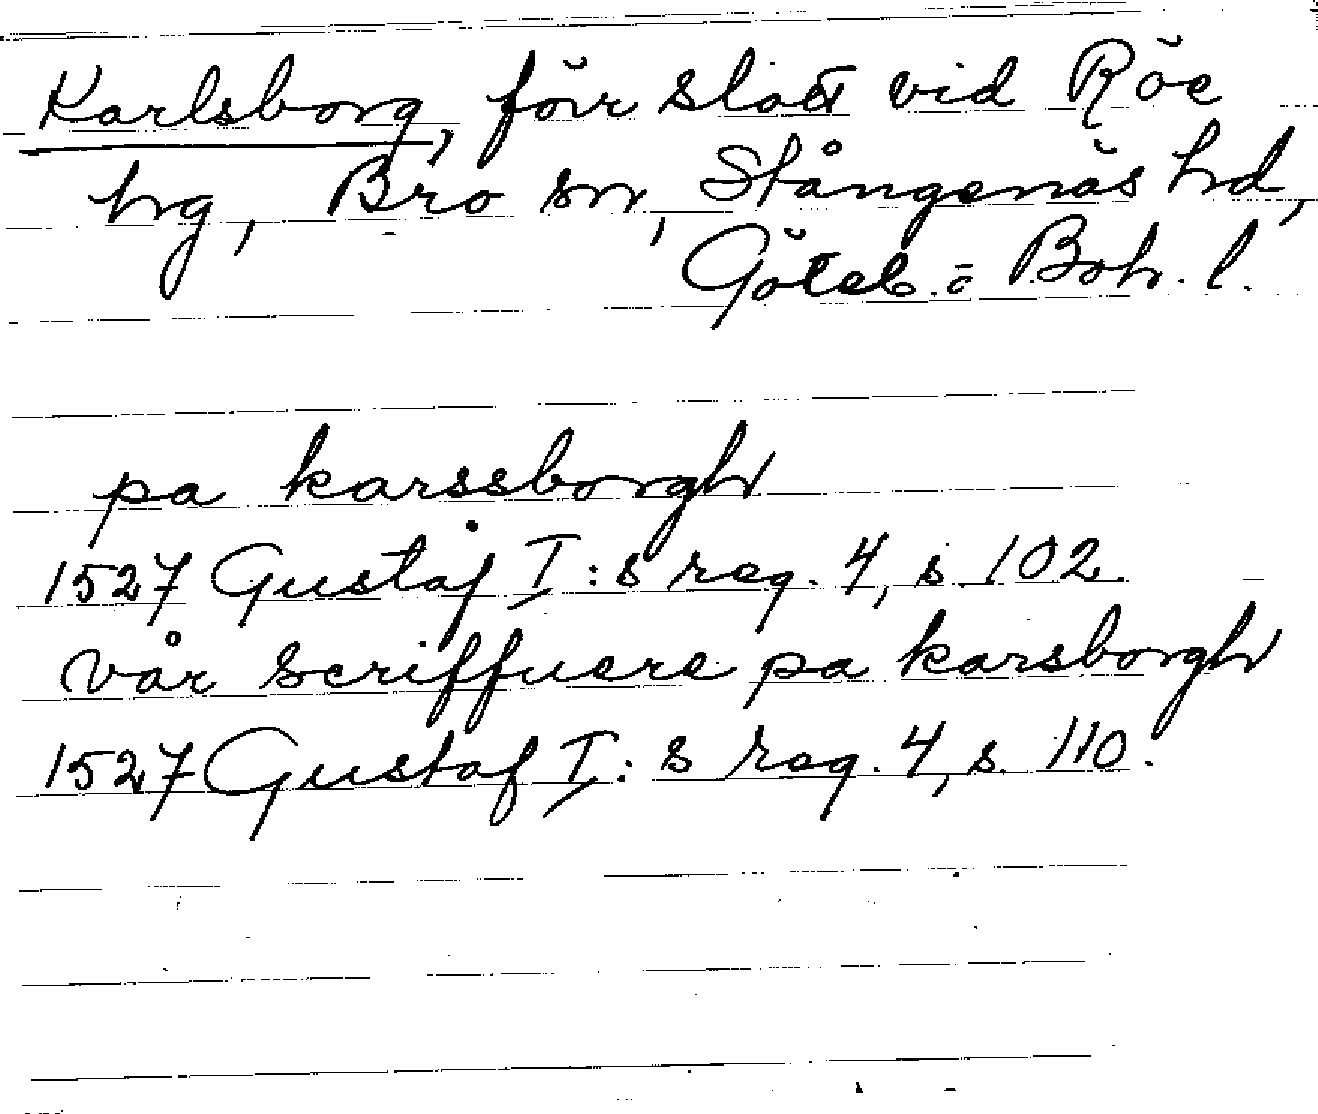 Karlsborg, förr slott vid Röe
hg, Bro sn, Stångenäs hd,
Göteb. o Boh. l.
pa karssborgh
1527 Gustaf I:s reg. 4, s. 102
vår scriffuere pa karsborgh
1527 Gustaf I:s reg. 4, s. 110.